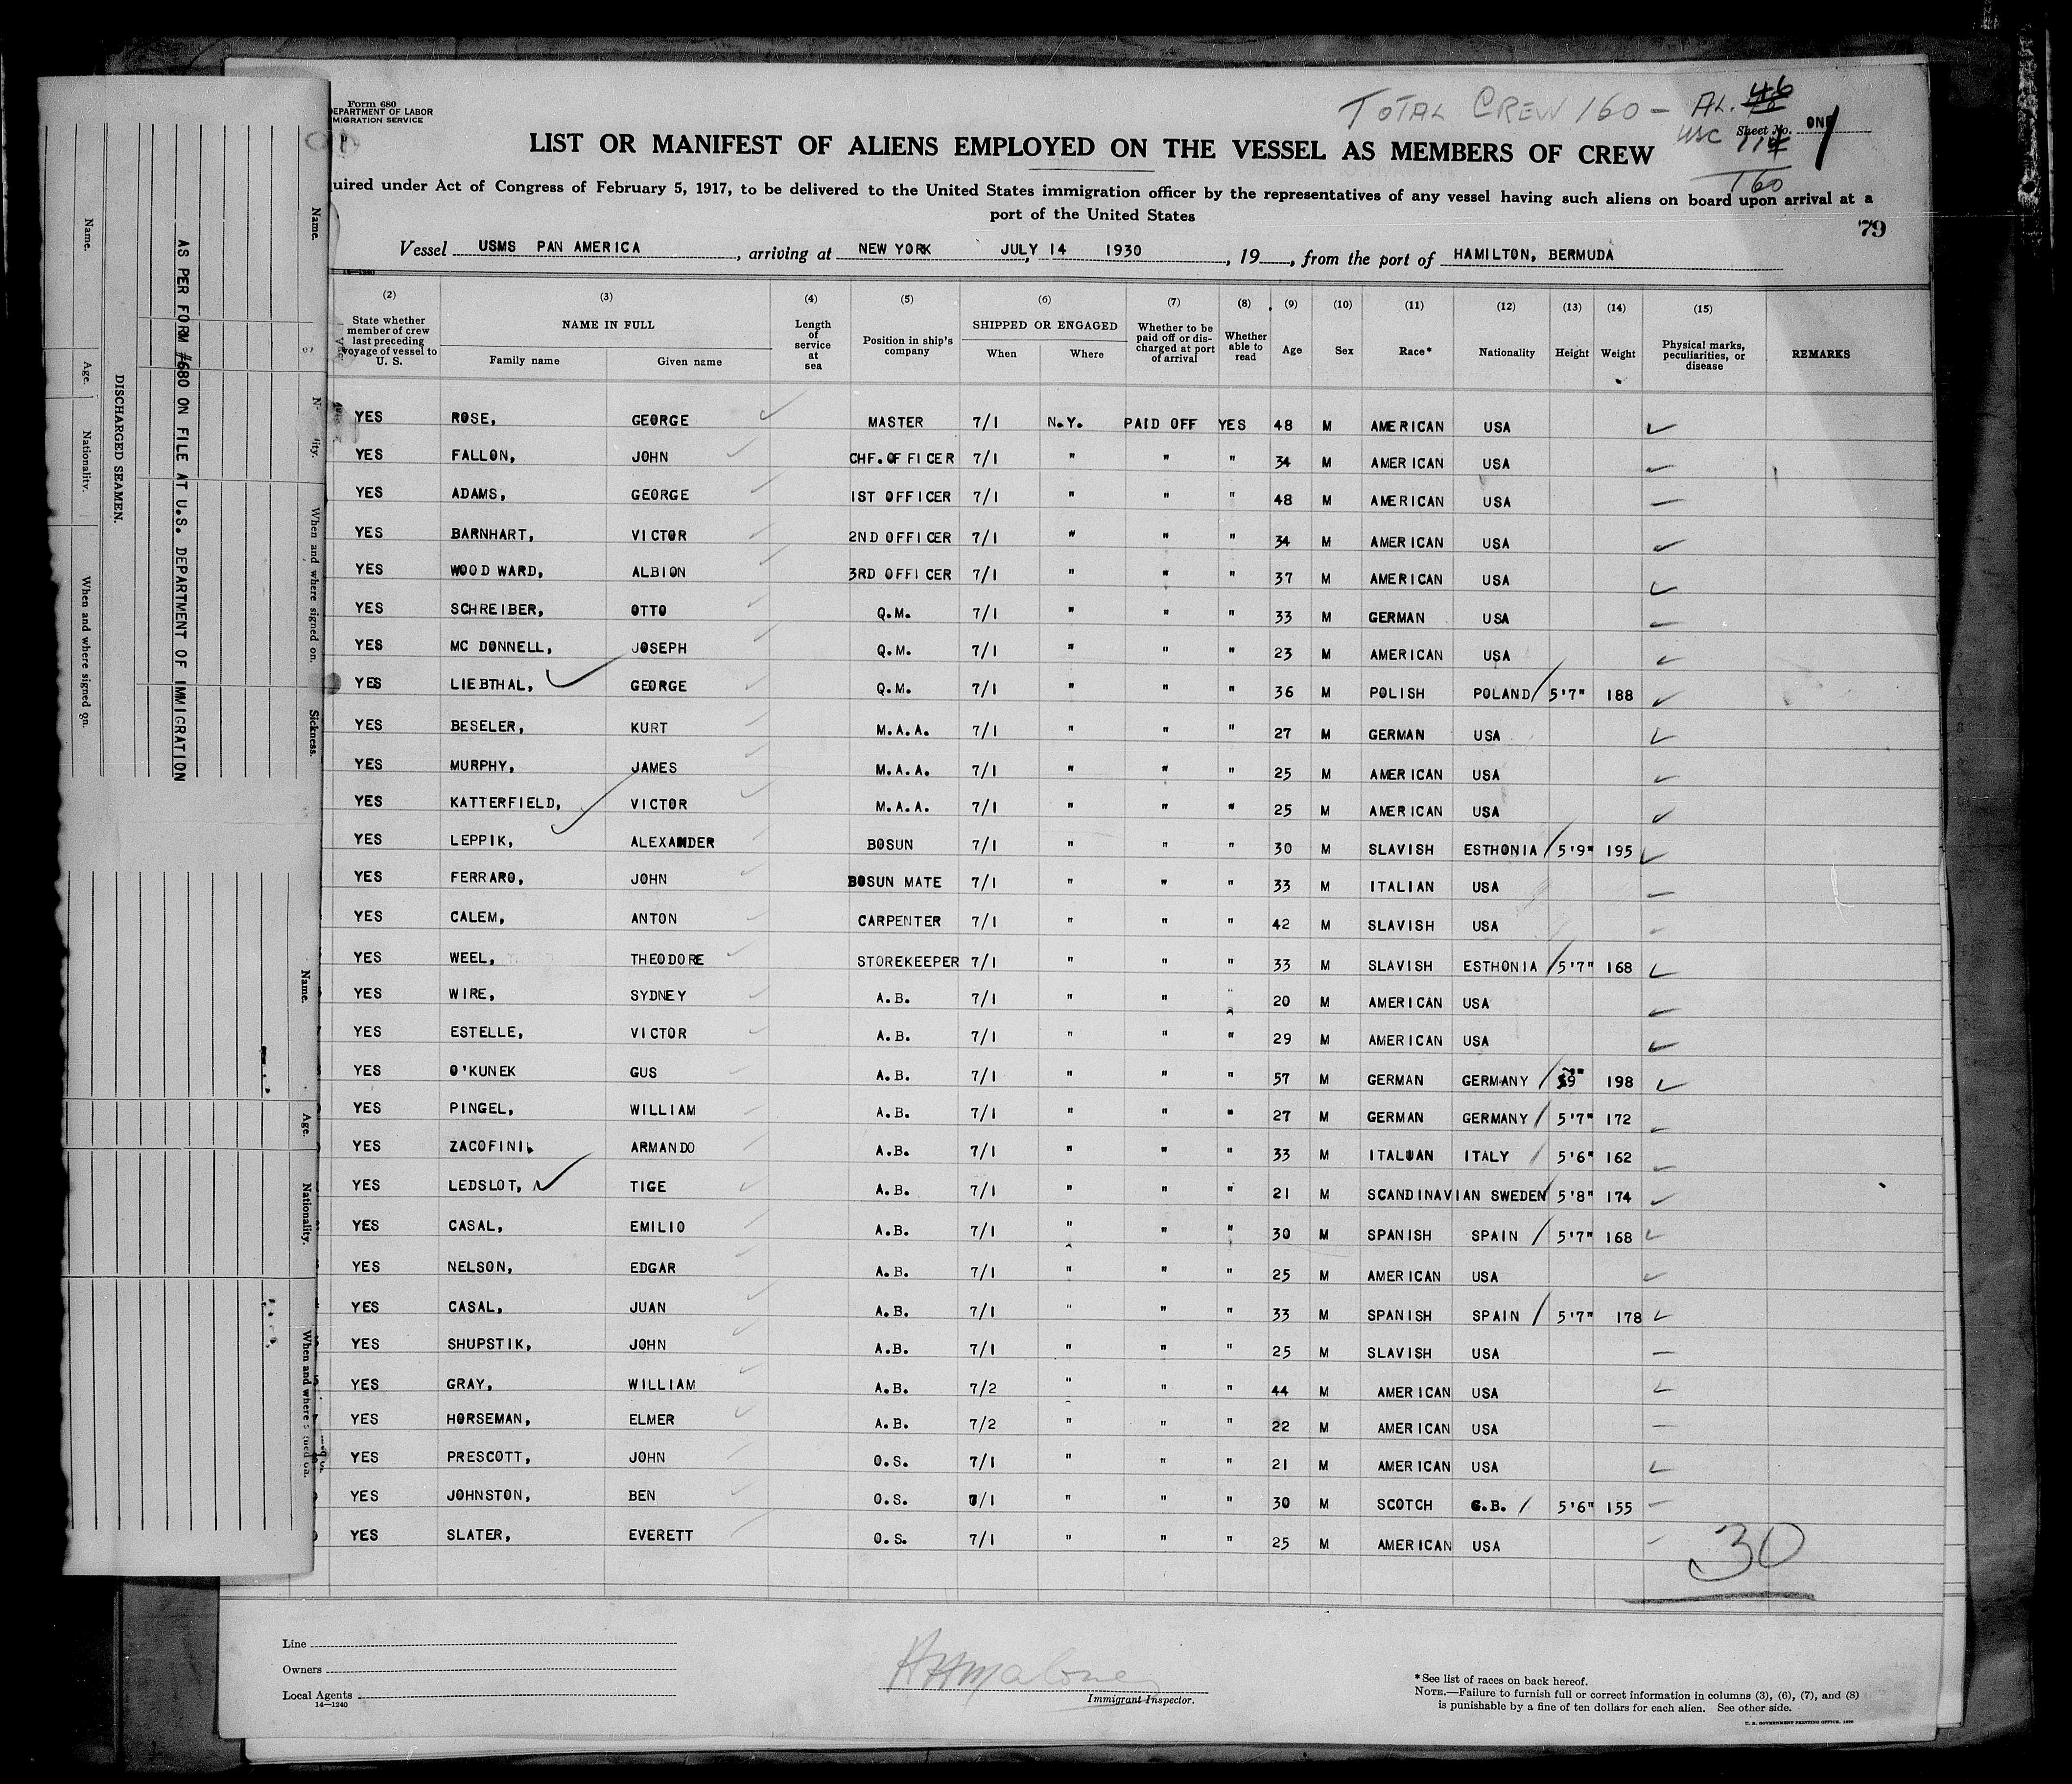 Form 680
DEPARTMENT OF LABOR
MIGRATION SERVICE
TOTAL CREW 160 - AL. 46
USC 114
160
Sheet No. ONE 1
LIST OR MANIFEST OF ALIENS EMPLOYED ON THE VESSEL AS MEMBERS OF CREW
uired under Act of Congress of February 5, 1917, to be delivered to the United States immigration officer by the representatives of any vessel having such aliens on board upon arrival at a
port of the United States
79
Vessel USMS PAN AMERICA, arriving at NEW YORK JULY 14 1930, 19, from the port of HAMILTON, BERMUDA
14-1240
(2) (3) (4) (5) (6) (7) (8) (9) (10) (11) (12) (13) (14) (15)
State whether member of crew last preceding voyage of vessel to U. S.
NAME IN FULL
Family name Given name
Length of service at sea
Position in ship's company
SHIPPED OR ENGAGED
When Where
Whether to be paid off or discharged at port of arrival
Whether able to read
Age Sex Race* Nationality Height Weight
Physical marks, peculiarities, or disease
REMARKS
YES ROSE, GEORGE MASTER 7/1 N.Y. PAID OFF YES 48 M AMERICAN USA
YES FALLON, JOHN CHF.OFFICER 7/1 " " " 34 M AMERICAN USA
YES ADAMS, GEORGE 1ST OFFICER 7/1 " " " 48 M AMERICAN USA
YES BARNHART, VICTOR 2ND OFFICER 7/1 " " " 34 M AMERICAN USA
YES WOODWARD, ALBION 3RD OFFICER 7/1 " " " 37 M AMERICAN USA
YES SCHREIBER, OTTO Q.M. 7/1 " " " 33 M GERMAN USA
YES MC DONNELL, JOSEPH Q.M. 7/1 " " " 23 M AMERICAN USA
YES LIEBTHAL, GEORGE Q.M. 7/1 " " " 36 M POLISH POLAND 5'7" 188
YES BESELER, KURT M.A.A. 7/1 " " " 27 M GERMAN USA
YES MURPHY, JAMES M.A.A. 7/1 " " " 25 M AMERICAN USA
YES KATTERFIELD, VICTOR M.A.A. 7/1 " " " 25 M AMERICAN USA
YES LEPPIK, ALEXANDER BOSUN 7/1 " " " 30 M SLAVISH ESTHONIA 5'9" 195
YES FERRARO, JOHN BOSUN MATE 7/1 " " " 33 M ITALIAN USA
YES CALEM, ANTON CARPENTER 7/1 " " " 42 M SLAVISH USA
YES WEEL, THEODORE STOREKEEPER 7/1 " " " 33 M SLAVISH ESTHONIA 5'7" 168
YES WIRE, SYDNEY A.B. 7/1 " " " 20 M AMERICAN USA
YES ESTELLE, VICTOR A.B. 7/1 " " " 29 M AMERICAN USA
YES O'KUNEK GUS A.B. 7/1 " " " 57 M GERMAN GERMANY 5'9" 198
YES PINGEL, WILLIAM A.B. 7/1 " " " 27 M GERMAN GERMANY 5'7" 172
YES ZACOFINI, ARMANDO A.B. 7/1 " " " 33 M ITALIAN ITALY 5'6" 162
YES LEDSLOT, TIGE A.B. 7/1 " " " 21 M SCANDINAVIAN SWEDEN 5'8" 174
YES CASAL, EMILIO A.B. 7/1 " " " 30 M SPANISH SPAIN 5'7" 168
YES NELSON, EDGAR A.B. 7/1 " " " 25 M AMERICAN USA
YES CASAL, JUAN A.B. 7/1 " " " 33 M SPANISH SPAIN 5'7" 178
YES SHUPSTIK, JOHN A.B. 7/1 " " " 25 M SLAVISH USA
YES GRAY, WILLIAM A.B. 7/2 " " " 44 M AMERICAN USA
YES HORSEMAN, ELMER A.B. 7/2 " " " 22 M AMERICAN USA
YES PRESCOTT, JOHN O.S. 7/1 " " " 21 M AMERICAN USA
YES JOHNSTON, BEN O.S. 7/1 " " " 30 M SCOTCH G.B. 5'6" 155
YES SLATER, EVERETT O.S. 7/1 " " " 25 M AMERICAN USA
30
Line
Owners
Local Agents
14-1240
HHMalone
Immigrant Inspector.
*See list of races on back hereof.
NOTE.—Failure to furnish full or correct information in columns (3), (6), (7), and (8)
is punishable by a fine of ten dollars for each alien. See other side.
U. S. GOVERNMENT PRINTING OFFICE
AS PER FORM #680 ON FILE AT U.S. DEPARTMENT OF IMMIGRATION
DISCHARGED SEAMEN.
Name. Age. Nationality. When and where signed on.
Name. ity. When and where signed on. Sickness.
Name. Age. Nationality. When and where signed on.